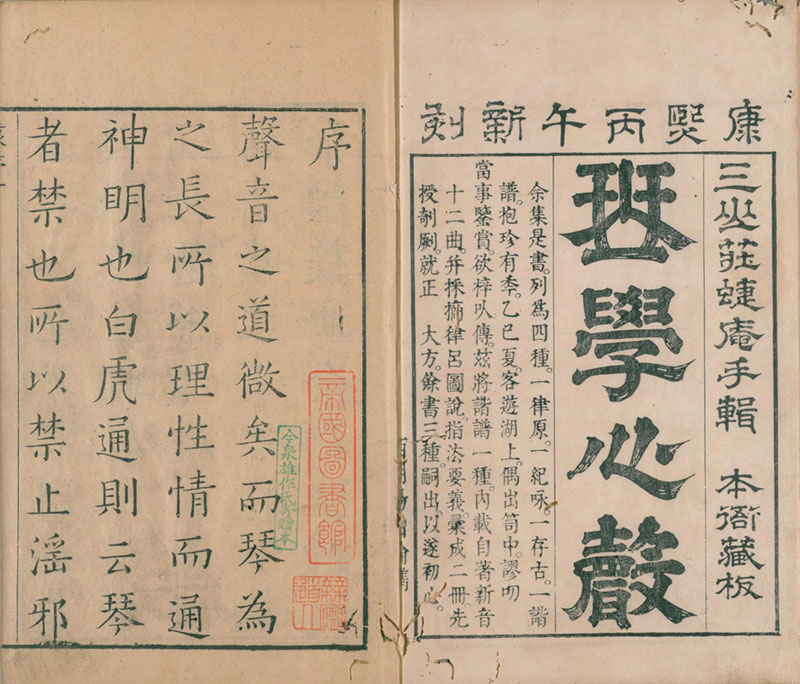 康熙丙午新刻
三山莊蜨庵手輯 本衙藏板
珡學心聲
余集是書。列爲四種。一律原。一紀咏。一存古。一諧
譜。抱珍有季。乙巳夏。客遊湖上。偶出笥中。謬叨
當事鑒賞。欲梓以傳。茲將諧譜一種。内載自著新音
十二曲。幷採擿律呂圖說。指法要義。彙成二冊。先
授剞劂。就正 大方。餘書三種。嗣出。以遂初心。
序
聲音之道微矣而琴為
之長所以理性情而通
神明也白虎通則云琴
者禁也所以禁止淫邪
帝國圖書館
今泉雄作氏寄贈本